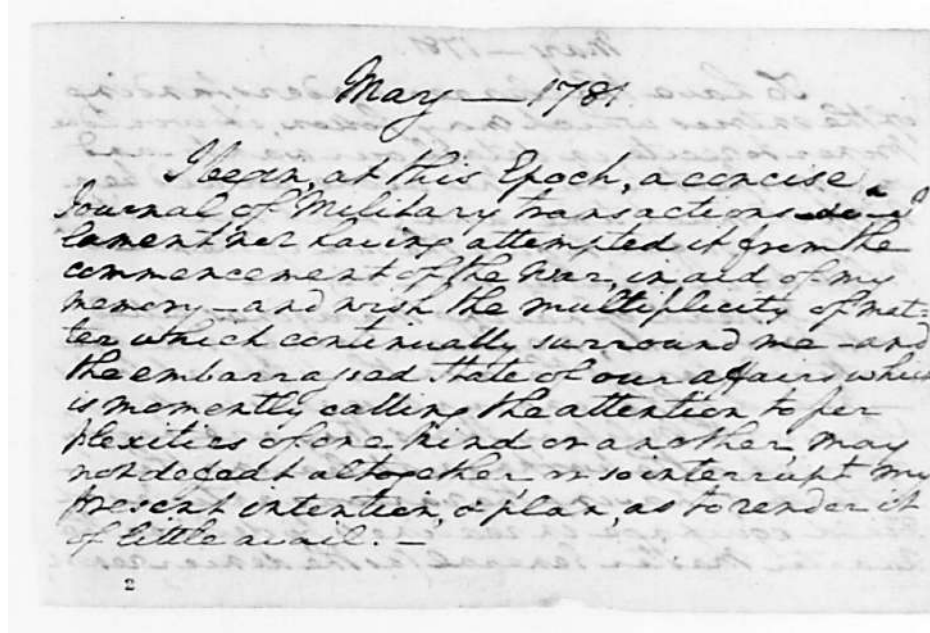 May — 1781.
I begin, at this Epoch, a concise
Journal of Military transactions &c. I
lament not having attempted it from the
commencement of the War, in aid of my
memory – and wish the multiplicity of mat-
ter which continually surround me – and
the embarrassed State of our affairs which
is momently calling the attention to per
plexities of one kind or another, may
not defeat altogether or so interrupt my
present intention, & plan, as to render it
of little avail. —
2